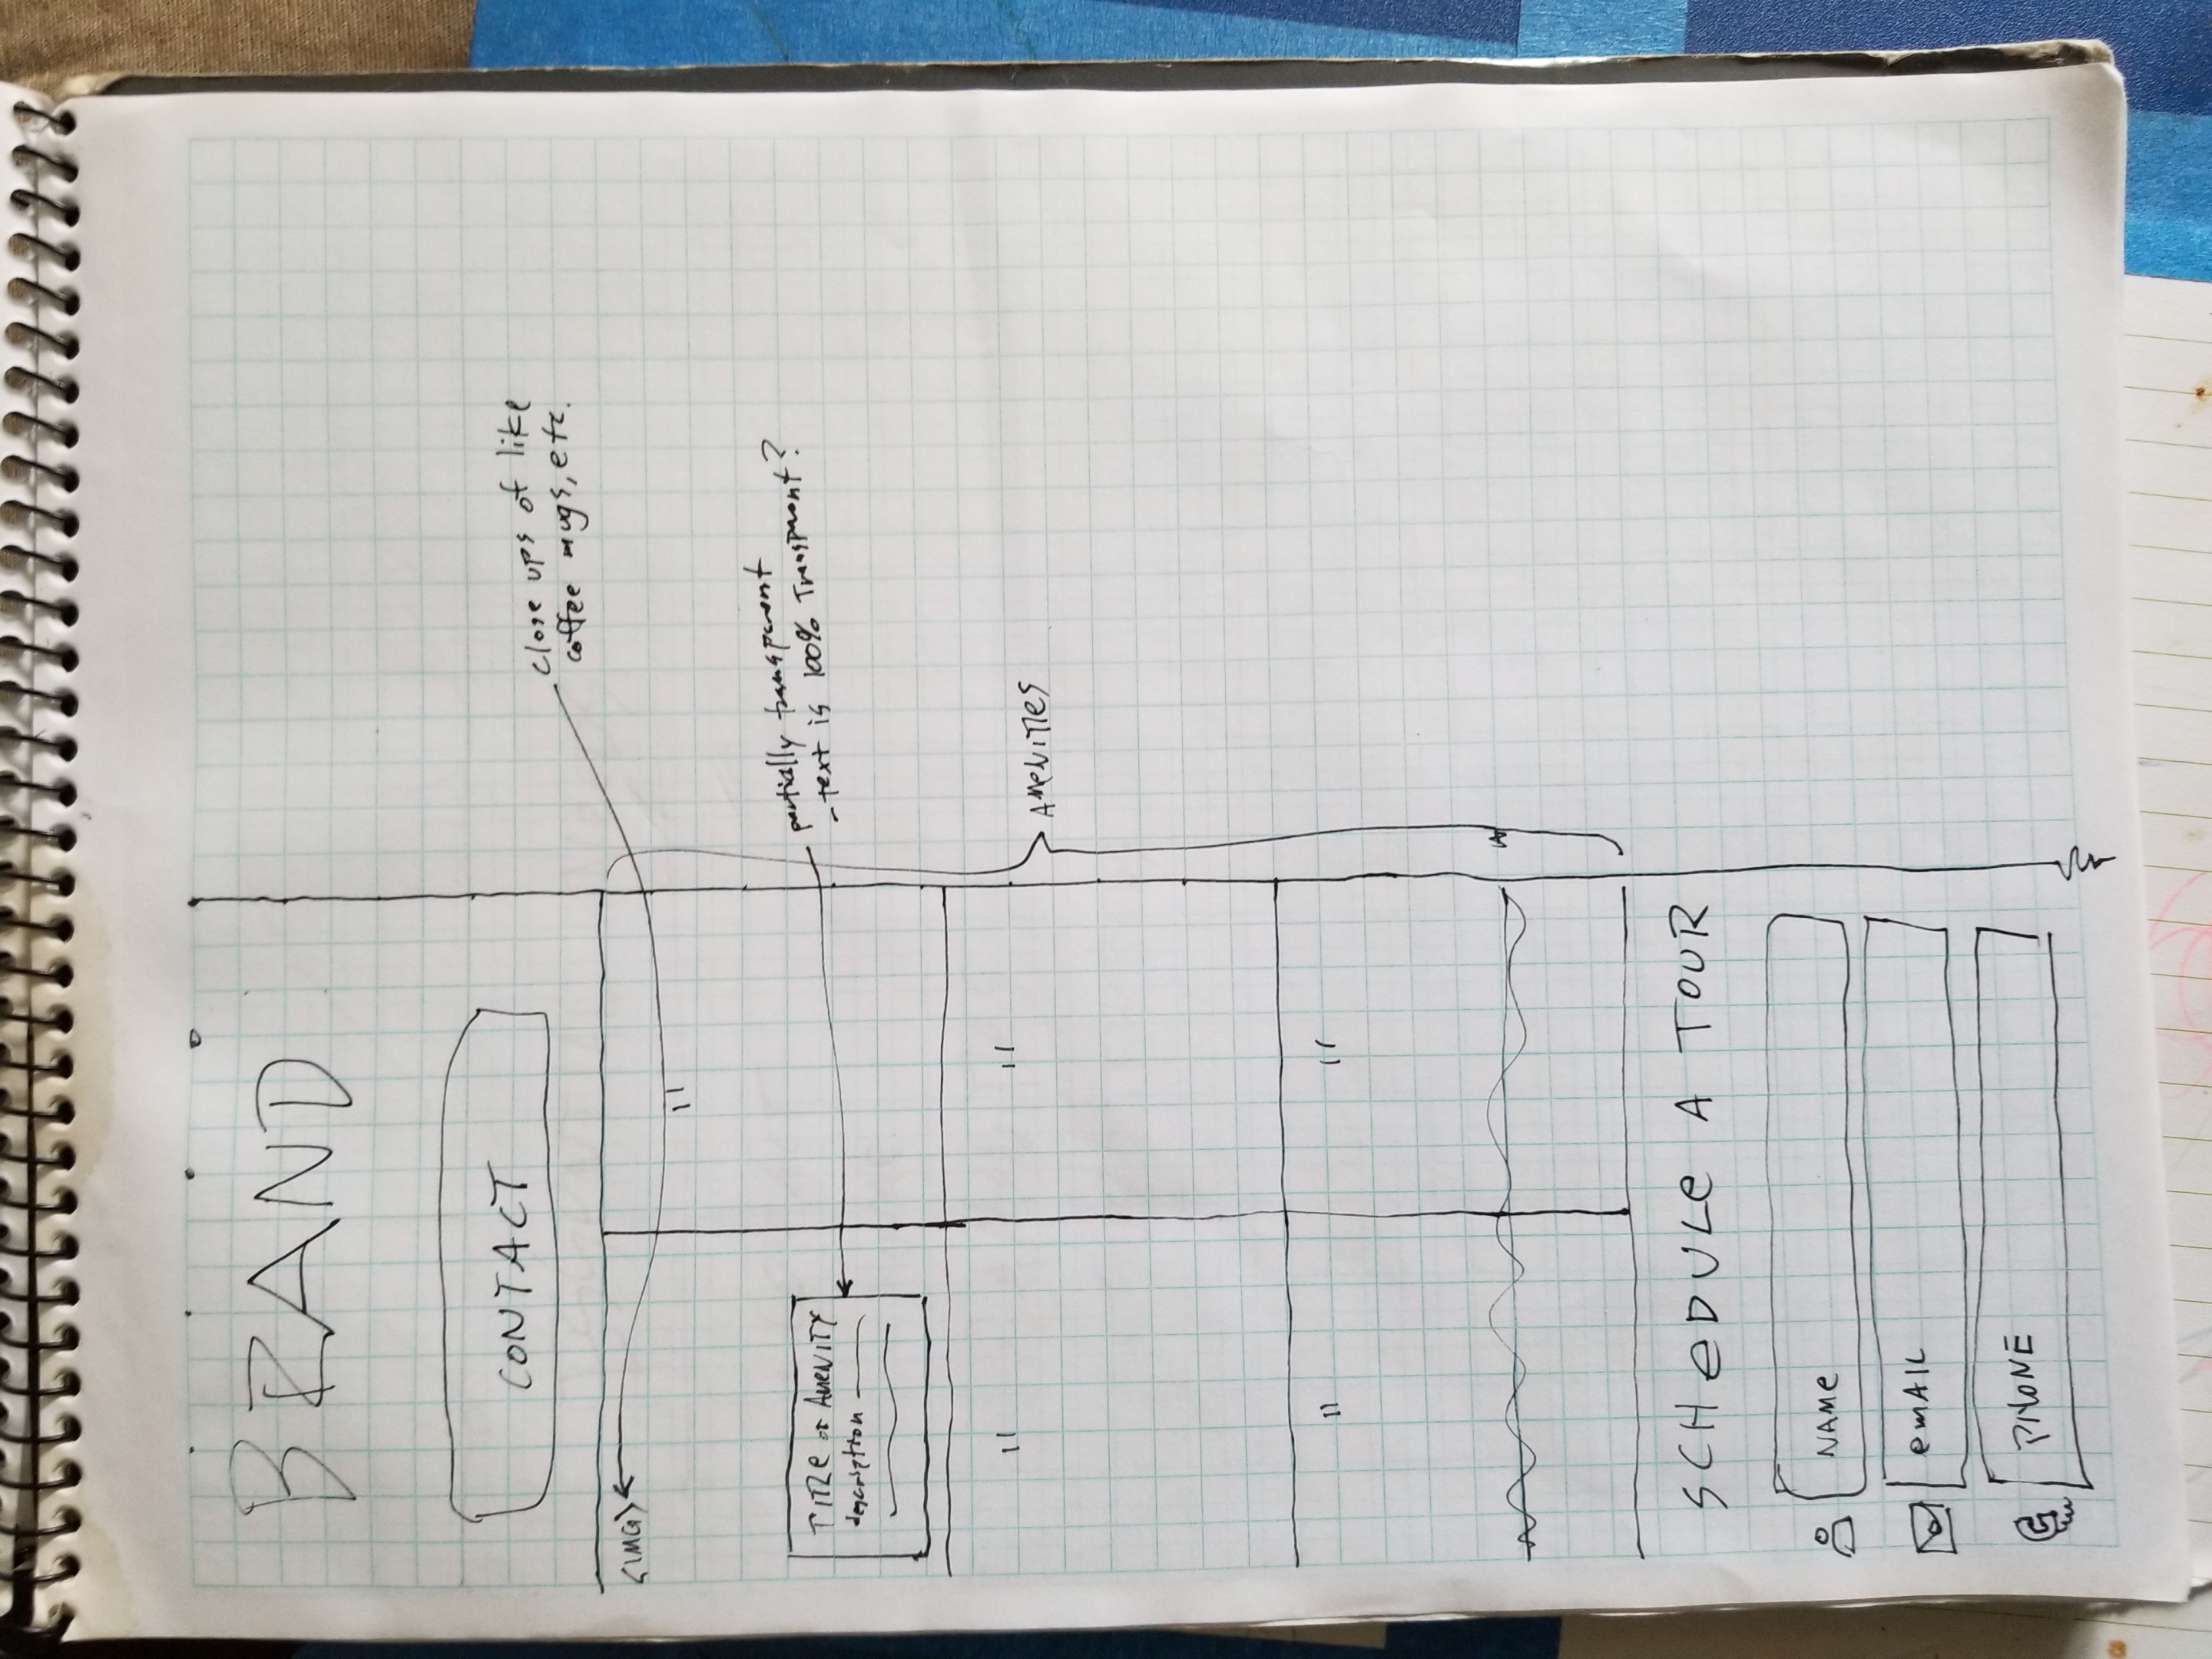 BRAND
CONTACT
close ups of like
coffee mugs, etc.
<IMG>
"
partially transparent
-text is 100% Transparent?
TITLE OF AMENITY
description
AMENITIES
"
"
"
"
SCHEDULE A TOUR
NAME
EMAIL
PHONE